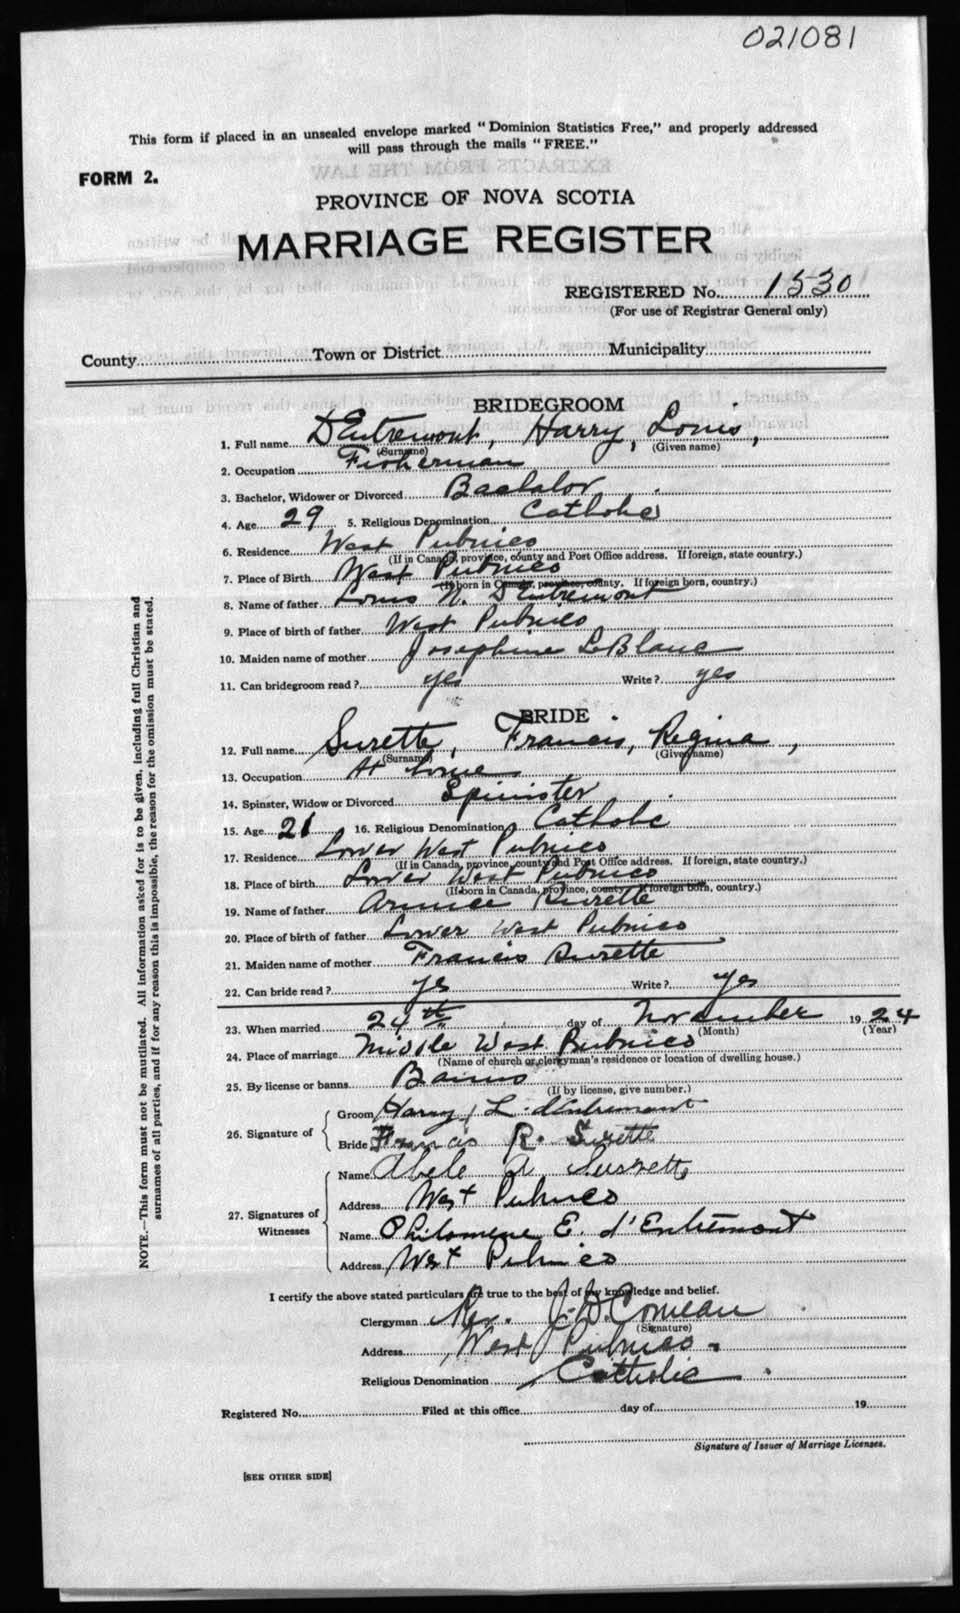 021081
This form if placed in an unsealed envelope marked "Dominion Statistics Free," and properly addressed
will pass through the mails "FREE."
FORM 2.
PROVINCE OF NOVA SCOTIA
MARRIAGE REGISTER
REGISTERED No. 1530
(For use of Registrar General only)
County Town or District Municipality
BRIDEGROOM
1. Full name D'Entremont, Harry, Louis,
(Surname) (Given name)
2. Occupation Fisherman
3. Bachelor, Widower or Divorced Bachelor
4. Age 29 5. Religious Denomination Catholic
6. Residence West Pubnico
(If in Canada, province, county and Post Office address. If foreign, state country.)
7. Place of Birth West Pubnico
(If born in Canada, province, county. If foreign born, country.)
8. Name of father Louis N. D'Entremont
9. Place of birth of father West Pubnico
10. Maiden name of mother Josephine LeBlanc
11. Can bridegroom read? yes Write? yes
BRIDE
12. Full name Surette, Francis, Regina,
(Surname) (Given name)
13. Occupation At home
14. Spinster, Widow or Divorced Spinster
15. Age 21 16. Religious Denomination Catholic
17. Residence Lower West Pubnico
(If in Canada, province, county and Post Office address. If foreign, state country.)
18. Place of birth Lower West Pubnico
(If born in Canada, province, county. If foreign born, country.)
19. Name of father Surette
20. Place of birth of father Lower West Pubnico
21. Maiden name of mother Francis Surette
22. Can bride read? yes Write? yes
23. When married 24th day of November 1924
(Month) (Year)
24. Place of marriage Middle West Pubnico
(Name of church or clergyman's residence or location of dwelling house.)
25. By license or banns Banns
(If by license, give number.)
26. Signature of
Groom Harry L. d'Entremont
Bride Francis R. Surette
27. Signatures of Witnesses
Name Abele A Surrette
Address West Pubnico
Name Philomene E. d'Entremont
Address West Pubnico
I certify the above stated particulars are true to the best of my knowledge and belief.
Clergyman Rev. J. D. Comeau
(Signature)
Address West Pubnico
Religious Denomination Catholic
Registered No. Filed at this office day of 19
Signature of Issuer of Marriage Licenses.
[SEE OTHER SIDE]
NOTE.—This form must not be mutilated. All information asked for is to be given, including full Christian and
surnames of all parties, and if for any reason this is impossible, the reason for the omission must be stated.